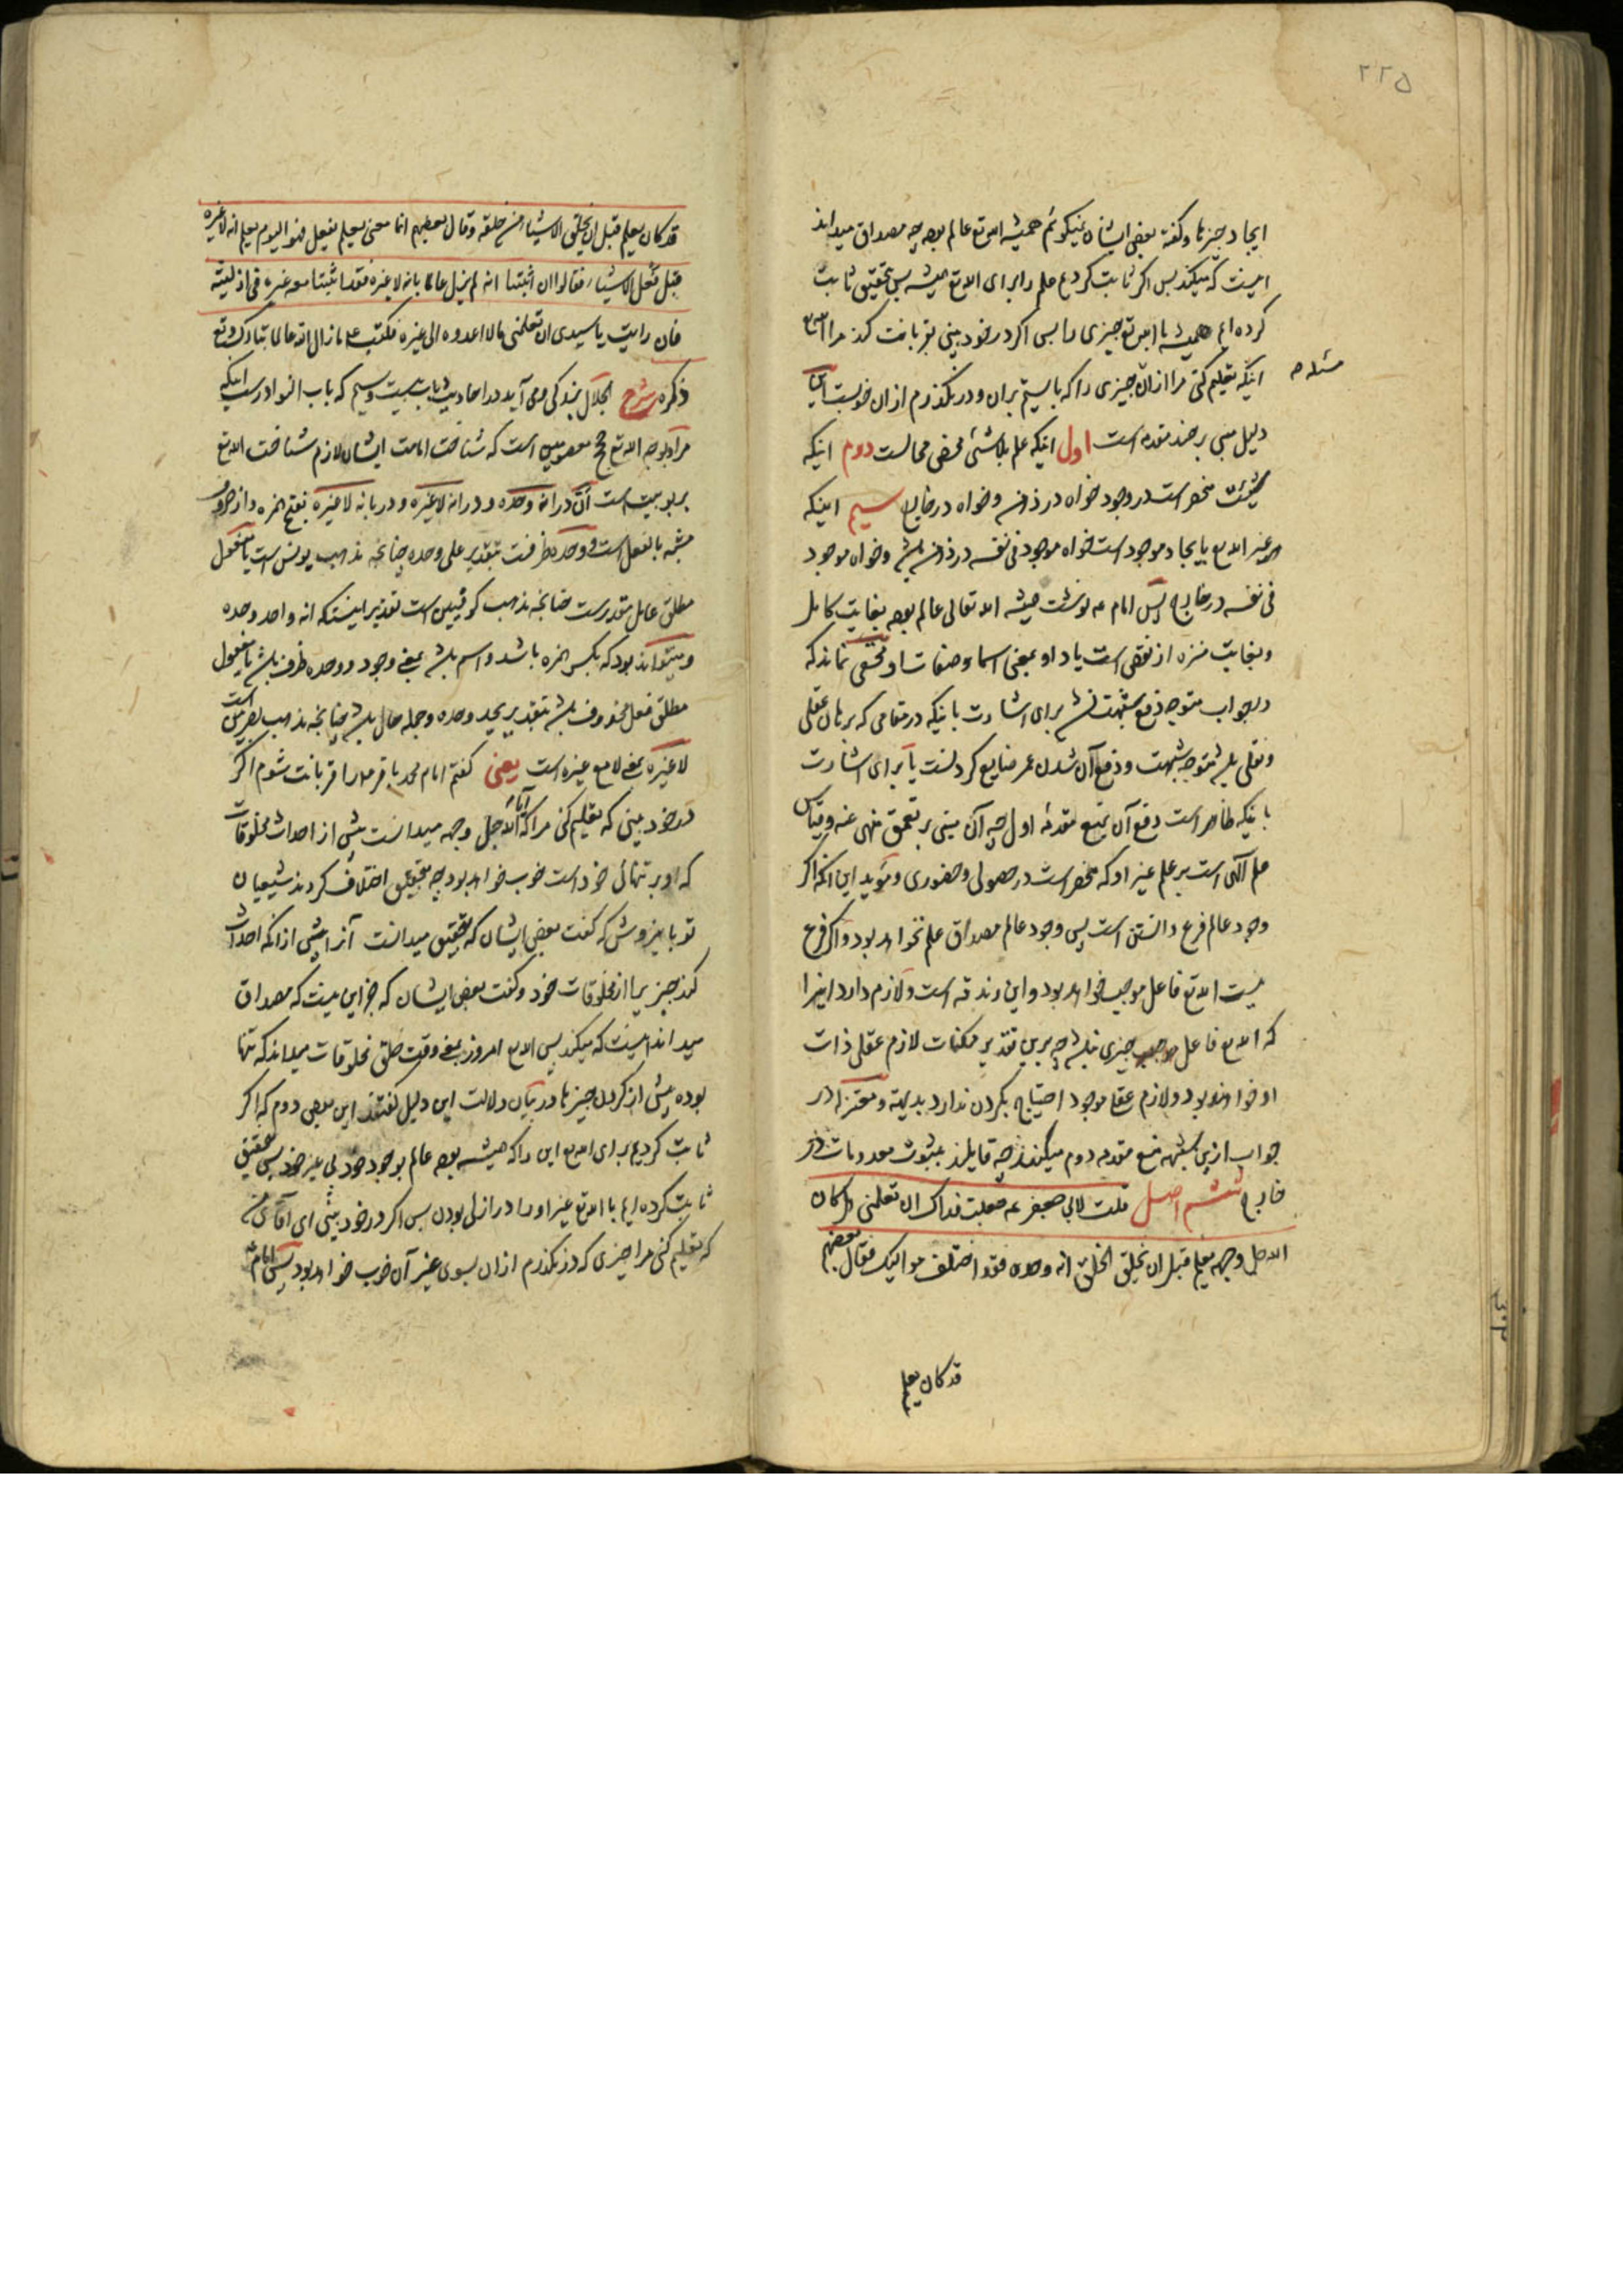 ۲۲۵
ایجاد چیزها و گفته بعضی ایشان نمیگوئم همیشه الله تع عالم بوده چه مصداق میداند
اینست که میکند پس اگر ثابت کردیم علم را برای الله تع همیشه پس بتحقیق ثابت
کرده ایم همیشه با الله تع چیزی را پس اگر در خود بینی بقربانت کند مرا الله تع
اینکه تعلیم کنی مرا ازان چیزی را که بایستم بران و در نگذرم ازان خوبست
مسئله
دلیل مبنی بر چند مقدمه است اول اینکه علم بلاشئ محض محالست دوم اینکه
شیئیت منحصر است در وجود خواه در ذهن و خواه در خارج سیم اینکه
هر غیر الله تع بایجاد موجود است خواه موجود فی نفسه در ذهن باشد و خواه موجود
فی نفسه در خارج پس امام ع نوشت همیشه الله تعالی عالم بوده بغایت کامل
و بغایت منزه از نقص است یاد او بمعنی اسما و صفات او مخفی نماند که
در جواب متوجه دفع شبهت نشد برای اشارت باینکه در مقامی که برهان عقلی
و نقلی باشد متوجه شبهت و دفع آن شدن عمر ضایع کردنست یا برای اشارت
باینکه ظاهر است دفع آن بمنع مقدمه اول چه آن مبنی بر تعمق منهی عنه و قیاس
علم الهی است بر علم غیر او که منحصر است در حصولی و حضوری و مؤید این آنکه اگر
وجود عالم فرع دانستن است پس وجود عالم مصداق علم نخواهد بود و اگر فرع
نیست الله تع فاعل موجب خواهد بود و این زندقه است و لازم دارد اینرا
که الله تع فاعل موجب چیزی نباشد چه برین تقدیر ممکنات لازم عقلی ذات
او خواهند بود و لازم عقلی موجود احتیاج بکردن ندارد بدیهة و معتزله در
جواب ازین شبهه منع مقدمه دوم میکنند چه قایلند بثبوت معدومات در
خارج ششم اصل قلت لابی جعفر ع جعلت فداک ان تعلمنی هل کان
الله جل وجهه یعلم قبل ان یخلق الخلق انه وحده فقد اختلف موالیک فقال بعضهم
قد کان یعلم
قد کان یعلم قبل ان یخلق الاشیاء من خلقه و قال بعضهم انما معنی یعلم یفعل فهو الیوم یعلم انه لا غیره
قبل فعل الاشیاء فقالوا ان اثبتنا انه لم یزل عالما بانه لا غیره فقد اثبتنا معه غیره فی ازلیته
فان رایت یا سیدی ان تعلمنی مالا اعدوه الی غیره فکتب ع ما زال الله عالما تبارک و تع
ذکره شرح الجلال بزندکی می آید در احادیث باب بیست و سیم که باب النوادر ست اینکه
مراد بوجه الله تع حجج معصومین است که شناخت امامت ایشان لازم شناخت الله تع
بربوبیت است ان در انه وحده و در انه لا غیره و در بانه لا غیره بفتح همزه و از حروف
مشبهه بالفعل است و وحده ظرفست بتقدیر علی وحده چنانچه مذهب یونس است یا مفعول
مطلق عامل مقدرست چنانچه مذهب کوفیین است تقدیر اینستکه انه واحد وحده
و میتواند بود که بکسر همزه باشد و اسم باشد بمعنی وجود و وحده ظرف باشد یا مفعول
مطلق فعل محذوف باشد بتقدیر یحد وحده و جمله حال باشد چنانچه مذهب بصریین است
لا غیره بمعنی لا مع غیره است یعنی گفتم امام محمد باقر ع را قربانت شوم اگر
در خود بینی که تعلیم کنی مرا که آیا الله جل وجهه میدانست پیش از احداث مخلوقات
که او بر تنهائی خود است خوب خواهد بود چه بتحقیق اختلاف کردند شیعیان
تو باینروش که گفت بعض ایشان که بتحقیق میدانست آنرا پیش از آنکه احداث
کند چیزی را از مخلوقات خود و گفت بعض ایشان که جز این نیست که مصداق
میداند اینست که میکند پس الله تع امروز بمعنی وقت خلق مخلوقات میداند که تنها
بوده پیش از کردن چیزها و در بیان دلالت این دلیل گفتند این بعض دوم که اگر
ثابت کردیم برای الله تع این را که همیشه بوده عالم بوجود خود بی غیر خود پس بتحقیق
ثابت کرده ایم با الله تع غیر او را در ازلی بودن پس اگر در خود بینی ای آقای من
که تعلیم کنی مرا چیزی که در نگذرم ازان بسوی غیر آن خوب خواهد بود پس امام ع